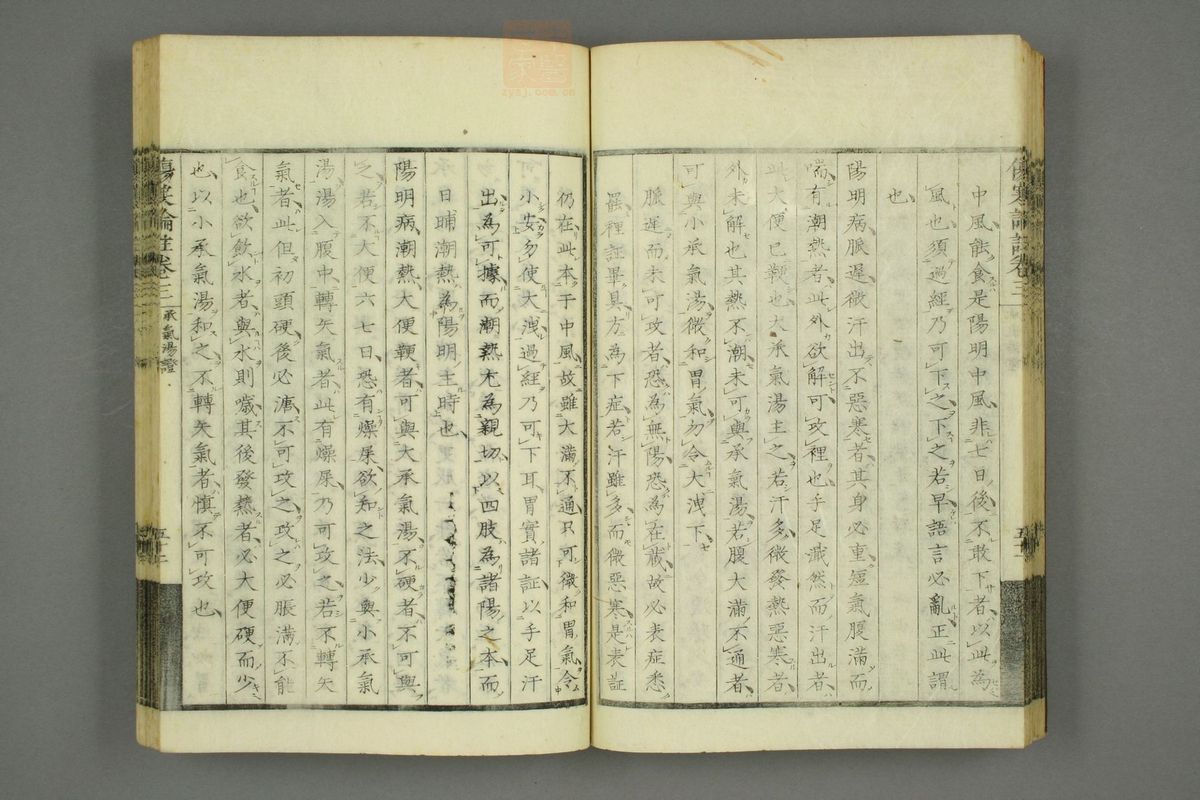 中風能食是陽明中風非七日後不敢下者以此為
風也須過經乃可下之下之若早語言必亂正此謂
也
陽明病脈遲微汗出不惡寒者其身必重短氣腹滿而
喘有潮熱者此外欲解可攻裡也手足濈然而汗出者
此大便已鞕也大承氣湯主之若汗多微發熱惡寒者
外未解也其熱不潮未可與承氣湯若腹大滿不通者
可與小承氣湯微和胃氣勿令大洩下
脈遲而未可攻者恐為無陽恐為在藏故必表症悉
罷裡証畢具方為下症若汗雖多而微惡寒是表証
仍在此本于中風故雖大滿不通只可微和胃氣令
小安勿使大洩過經乃可下耳胃實諸証以手足汗
出為可據而潮熱尤為親切以四肢為諸陽之本而
日晡潮熱為陽明主時也
陽明病潮熱大便鞕者可與大承氣湯不硬者不可與
之若不大便六七日恐有燥屎欲知之法少與小承氣
湯湯入腹中轉矢氣者此有燥屎乃可攻之若不轉矢
氣者此但初頭硬後必溏不可攻之攻之必脹滿不能
食也欲飲水者與水則噦其後發熱者必大便硬而少
也以小承氣湯和之不轉矢氣者慎不可攻也
傷寒論註卷三
承氣湯證
五十二
zysj.com.cn